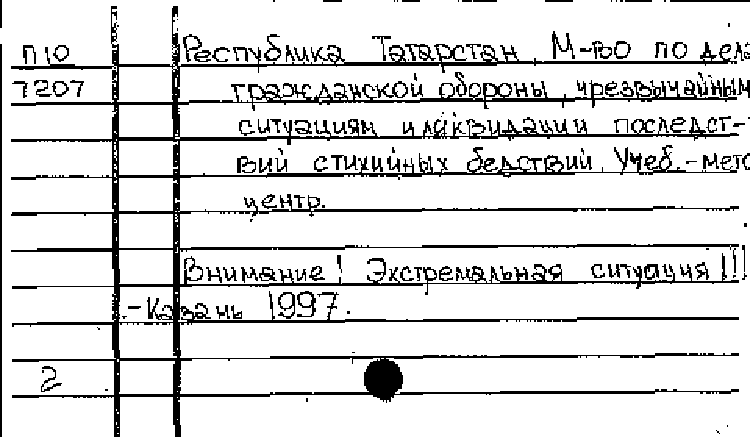 П10 Республика Татарстан, М-во по дела
7207 гражданской обороны, чрезвычайным
ситуациям и ликвидации последст-
вий стихийных бедствий. Учеб.-мето
центр.
Внимание! Экстремальная ситуация!!!
.-Казань 1997.
2